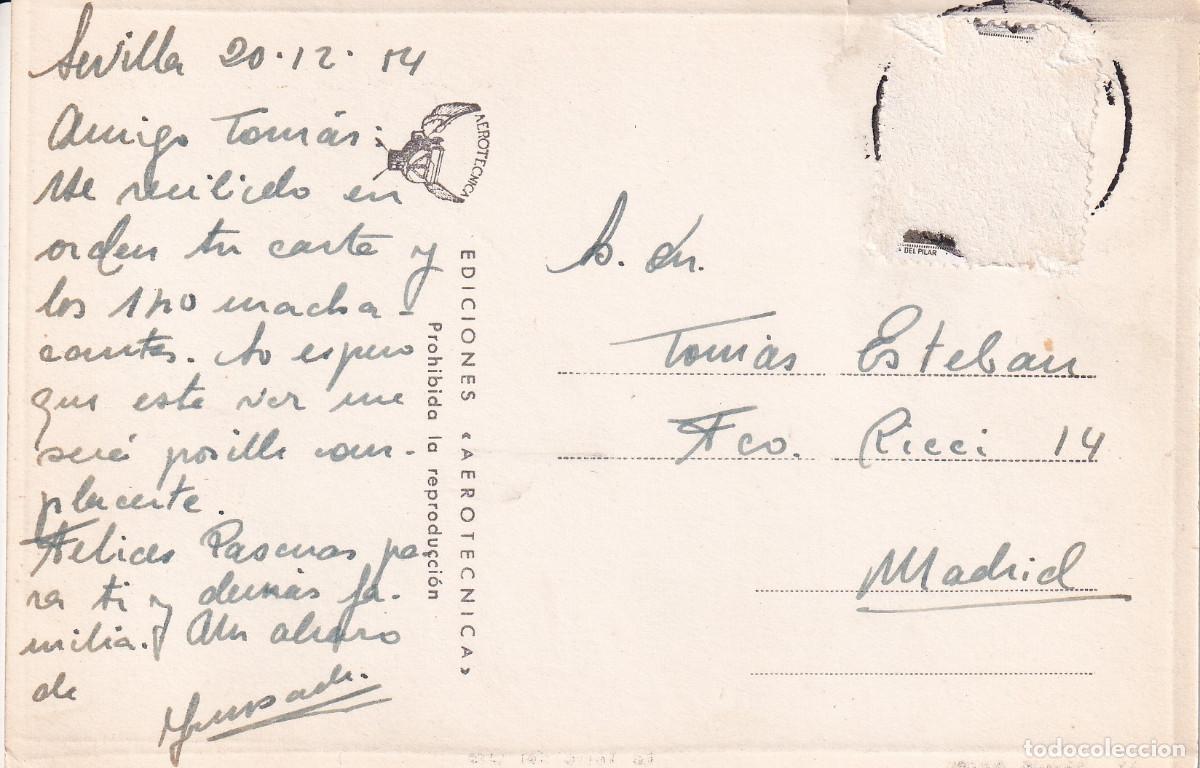 Sevilla 20.12.54
Amigo Tomás:
He recibido en
orden tu carta y
los 170 macha-
cantes. Yo espero
que esta vez me
será posible com-
placerte.
Felices Pascuas pa-
ra ti y demás fa-
milia. Un abrazo
de
AEROTECNICA
EDICIONES «AEROTECNICA»
Prohibida la reproducción
DEL PILAR
S. Dn.
Tomás Esteban
Fco. Ricci 14
Madrid
todocoleccion